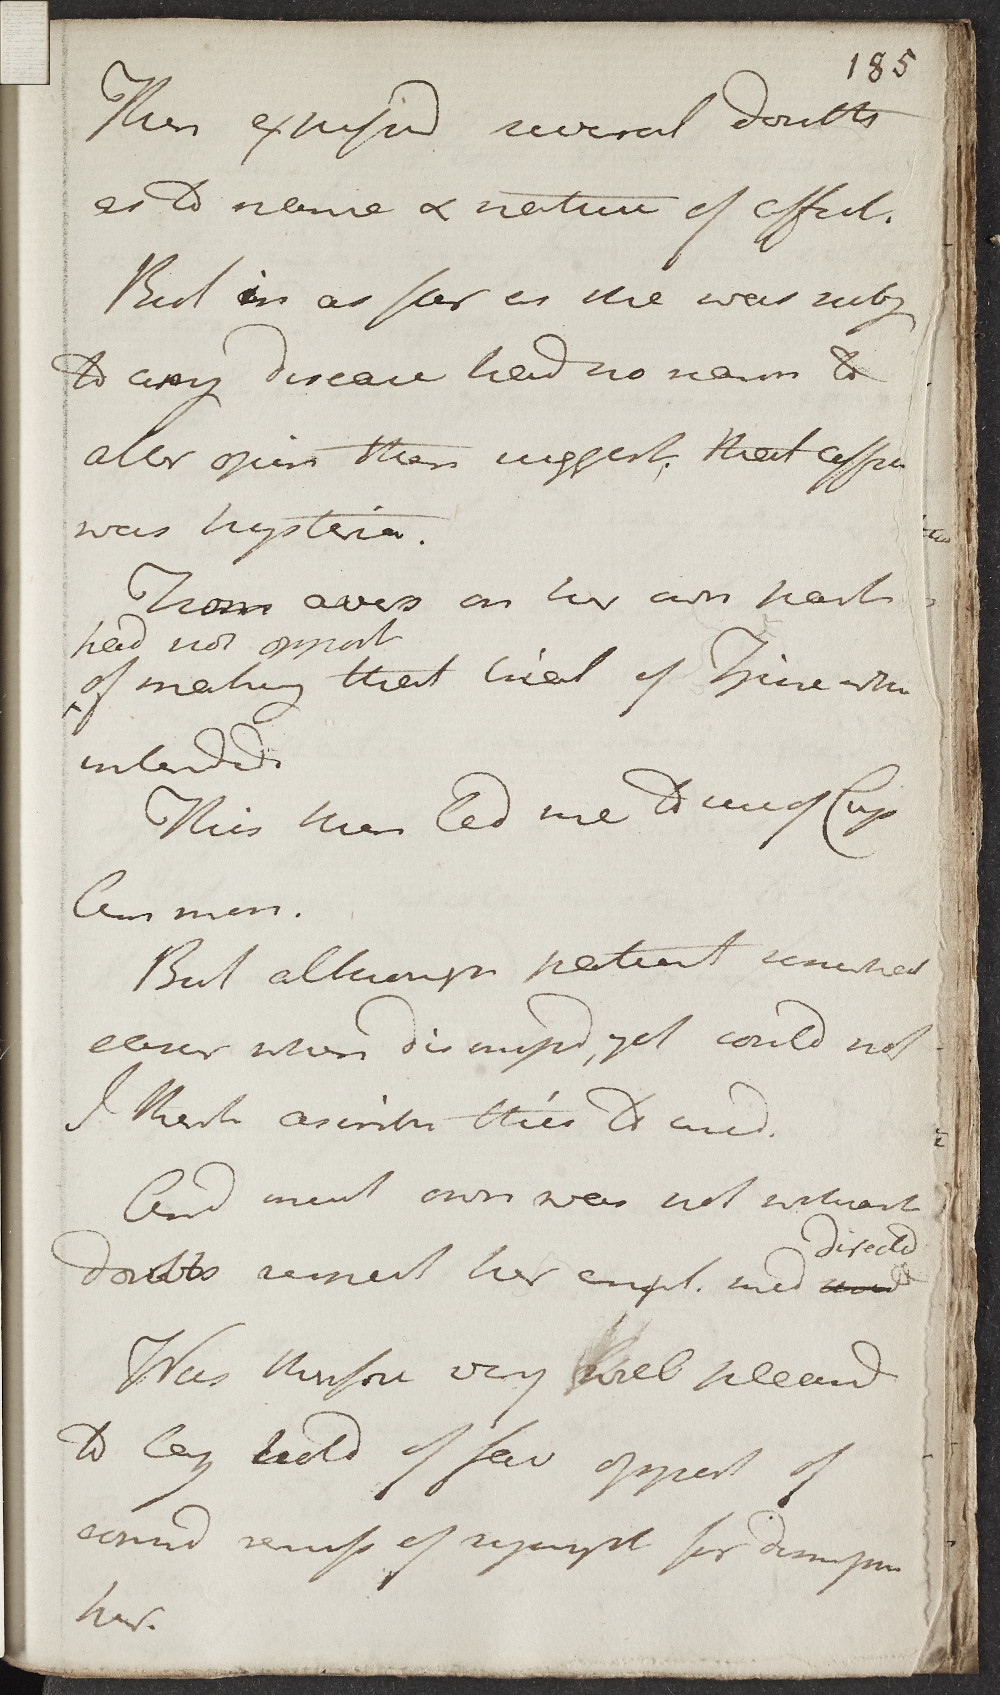 185
Then expressd several doubts
as to name & nature of affect.
But in as far as she was subj
to any disease had no reason to
alter opin then suggest. that affec
was hysteria.
From avers on her own part
had not opport
of making that trial of Tinc whi
intended.
This then led me to use of Cup
Ammon.
But although patient somewhat
easier when dismissd, yet could not
I think ascribe this to med.
And must own was not without
doubts respect her empl. med
directd
Was therefore very well pleasd
to lay hold of fav opport of
remiss of sympt for dismissn
her.